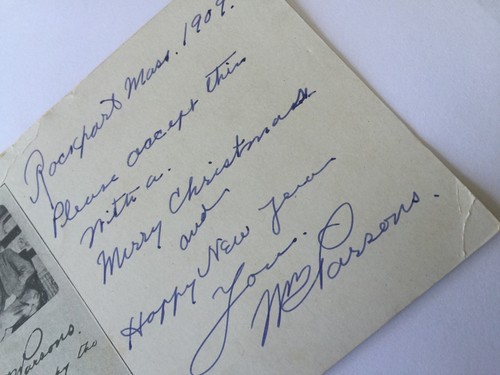 Rockport Mass. 1909.
Please accept this
with a.
Merry Christmas
and.
Happy New Year
Yours.
Wm Parsons.
Parsons.
by the